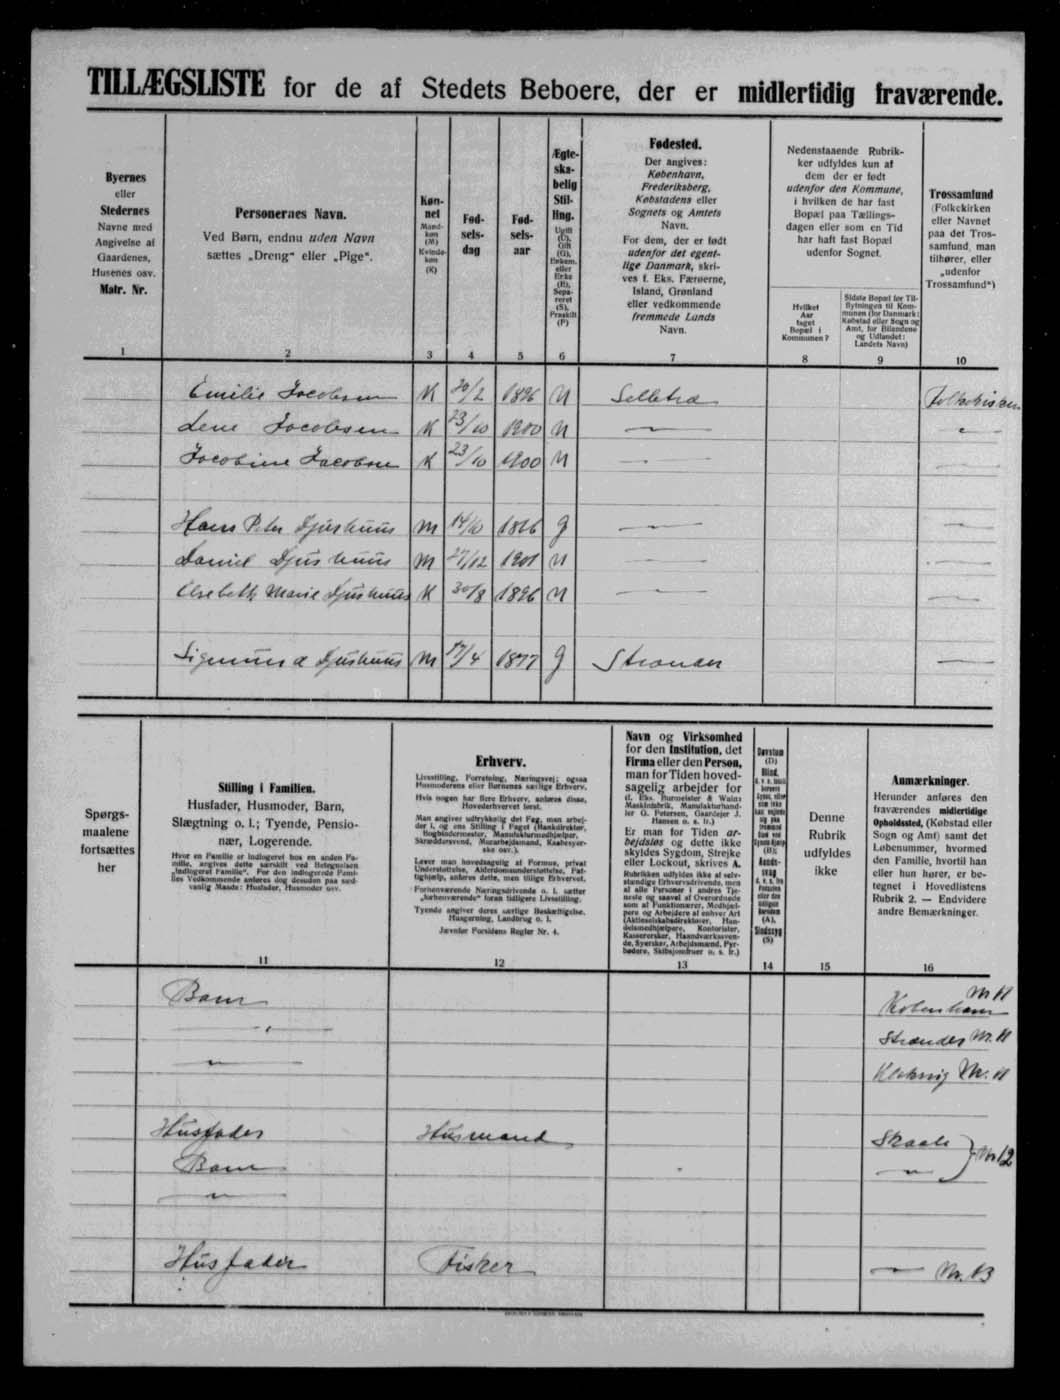 TILLÆGSLISTE for de af Stedets Beboere, der er midlertidig fraværende.
Byernes
eller
Stedernes
Navne med
Angivelse af
Gaardenes,
Husenes osv.
Matr. Nr.
Personernes Navn.
Ved Børn, endnu uden Navn
sættes „Dreng" eller „Pige".
Køn-
net
Mand-
køn
(M)
Kvinde-
køn
(K)
Fød-
sels-
dag
Fød-
sels-
aar
Ægte-
ska-
belig
Stil-
ling.
Ugift
(U),
Gift
(G),
Enkem.
eller
Enke
(E),
Sepa-
reret
(S),
Fraskilt
(F)
Fødested.
Der angives:
København,
Frederiksberg,
Købstadens eller
Sognets og Amtets
Navn.
For dem, der er født
udenfor det egent-
lige Danmark, skri-
ves f. Eks. Færøerne,
Island, Grønland
eller vedkommende
fremmede Lands
Navn.
Nedenstaaende Rubrik-
ker udfyldes kun af
dem der er født
udenfor den Kommune,
i hvilken de har fast
Bopæl paa Tællings-
dagen eller som en Tid
har haft fast Bopæl
udenfor Sognet.
Hvilket
Aar
taget
Bopæl i
Kommunen?
Sidste Bopæl før Til-
flytningen til Kom-
munen (for Danmark:
Købstad eller Sogn og
Amt, for Bilandene
og Udlandet:
Landets Navn)
Trossamfund
(Folkekirken
eller Navnet
paa det Tros-
samfund, man
tilhører, eller
„udenfor
Trossamfund")
1 2 3 4 5 6 7 8 9 10
Emilie Jacobsen K 20/2 1896 U Selletræ Folkekirken
Lene Jacobsen K 23/10 1900 U — " — "
Jacobine Jacobsen K 23/10 1900 U — " — "
Hans Peter Djurhuus M 14/10 1866 G — " — "
Daniel Djurhuus M 27/12 1901 U — " — "
Elsebeth Marie Djurhuus K 30/8 1896 U — " — "
Sigmund Djurhuus M 17/4 1877 G — "
Spørgs-
maalene
fortsættes
her
Stilling i Familien.
Husfader, Husmoder, Barn,
Slægtning o. l.; Tyende, Pensio-
nær, Logerende.
Hvor en Familie er indlogeret hos en anden Fa-
milie, angives dette særskilt ved Betegnelsen
„indlogeret Familie". For den indlogerede Fami-
lies Vedkommende anføres dog desuden paa sæd-
vanlig Maade: Husfader, Husmoder osv.
Erhverv.
Livsstilling, Forretning, Næringsvej; ogsaa
Husmoderens eller Børnenes særlige Erhverv.
Hvis nogen har flere Erhverv, anføres disse,
Hovederhvervet først.
Man angiver udtrykkelig det Fag, man arbej-
der i, og ens Stilling i Faget (Bankdirektør,
Bogbindermester, Manufakturmedhjælper,
Skræddersvend, Murarbejdsmand, Kaabesyer-
ske osv.).
Lever man hovedsagelig af Formue, privat
Understøttelse, Alderdomsunderstøttelse, Fat-
tighjælp, anføres dette, men tillige Erhvervet.
Forhenværende Næringsdrivende o. l. sætter
„forhenværende" foran tidligere Livsstilling.
Tyende angiver deres særlige Beskæftigelse,
Husgerning, Landbrug o. l.
Jævnfør Forsidens Regler Nr. 4.
Navn og Virksomhed
for den Institution, det
Firma eller den Person,
man for Tiden hoved-
sagelig arbejder for
(f. Eks. Burmeister & Wains
Maskinfabrik, Manufakturhand-
ler G. Petersen, Gaardejer J.
Hansen o. s. fr.)
Er man for Tiden ar-
bejdsløs og dette ikke
skyldes Sygdom, Strejke
eller Lockout, skrives A.
Rubrikken udfyldes ikke af selv-
stændige Erhvervsdrivende, men
af alle Personer i andres Tje-
neste og saavel af Overordnede
som af Funktionærer, Medhjæl-
pere og Arbejdere af enhver Art
(Aktieselskabsdirektører, Han-
delsmedhjælpere, Kontorister,
Kassererske, Haandværkssven-
de, Syersker, Arbejdsmænd, Fyr-
bødere, Skibsjomfruer o. s. fr.)
Døvstum
(D)
Blind,
Sindssyg
(S)
Denne
Rubrik
udfyldes
ikke
Anmærkninger.
Herunder anføres den
fraværendes midlertidige
Opholdssted, (Købstad eller
Sogn og Amt) samt det
Løbenummer, hvormed
den Familie, hvortil han
eller hun hører, er be-
tegnet i Hovedlistens
Rubrik 2. — Endvidere
andre Bemærkninger.
11 12 13 14 15 16
Barn København Nr. 11
— " — Strænder Nr. 11
— " — Klaksvig Nr. 11
Husfader Husmand Skaale
Barn — " — } Nr. 12
— " —
Husfader Fisker — " — Nr. 13